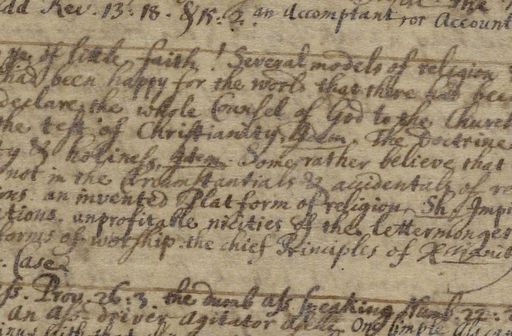 add Rev. 13. 18. & 15. 2. an Accomptant or Account
of little faith! Several models of religion
had been happy for the world that there had bee
declare the whole Counsel of God to the Church
the test of Christianity. Idem. The Doctrine
& holiness. Idem. Some rather believe that
not in the circumstantials & accidentals of re
ons. an invented Platform of religion. Sh. Impi
itions. unprofitable niceties of the lettermonger
forms of worship. the chief Principles of Xtianit
Case
Ass. Prov. 26. 3. the dumb Ass speaking Numb. 22.
an Ass driver Agitator One simple